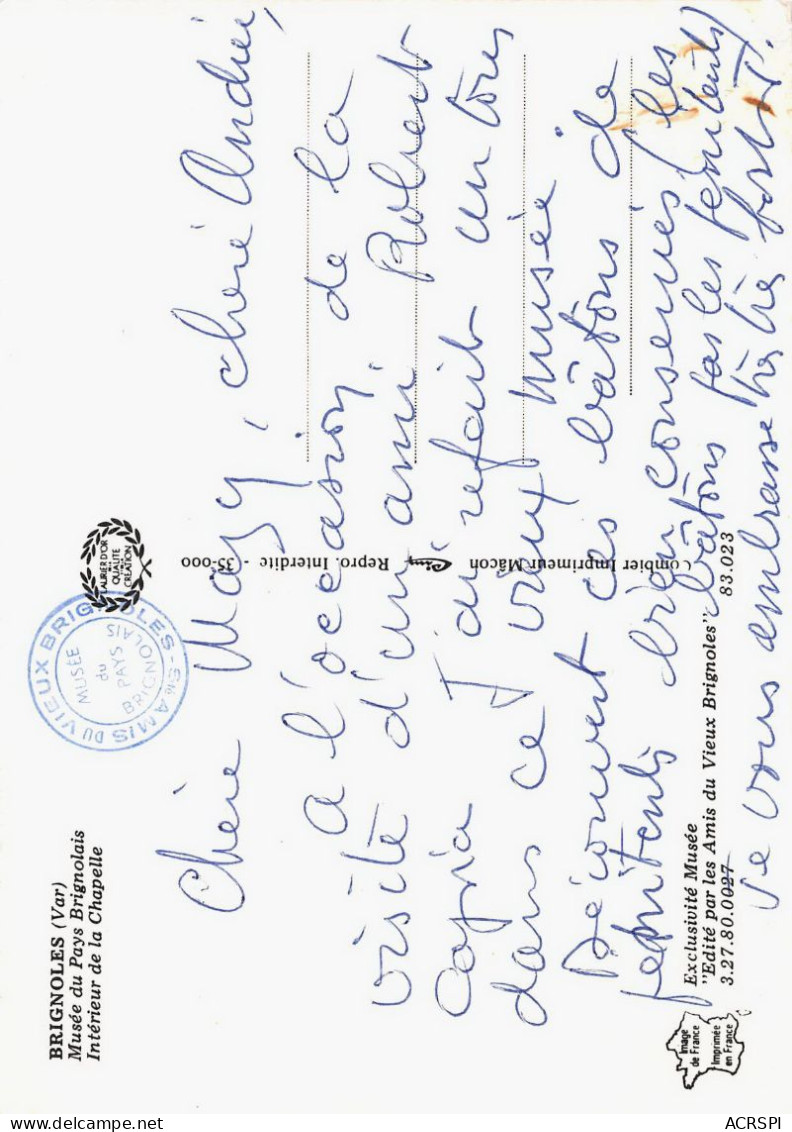 BRIGNOLES (Var)
Musée du Pays Brignolais
Intérieur de la Chapelle
Sté AMIS DU VIEUX BRIGNOLES
MUSÉE
du
PAYS
BRIGNOLAIS
LAURIER D'OR
DE LA
QUALITÉ
CRÉATION
Chère Magy, cheré Andrée,
a l'occasion de la
visite d'un ami Robert
Capia J'ai refait un tour
dans ce vieux musée
Découvert ces bâtons de
penitents bien conservés (les
bâtons pas les penitents)
Je vous embrasse très très fort.
Combier Imprimeur Mâcon Cim Repro. Interdite - 35-000
Exclusivité Musée
"Edité par les Amis du Vieux Brignoles"
3.27.80.0027 83.023
Image
de France
Imprimée
en France
ACRSPI